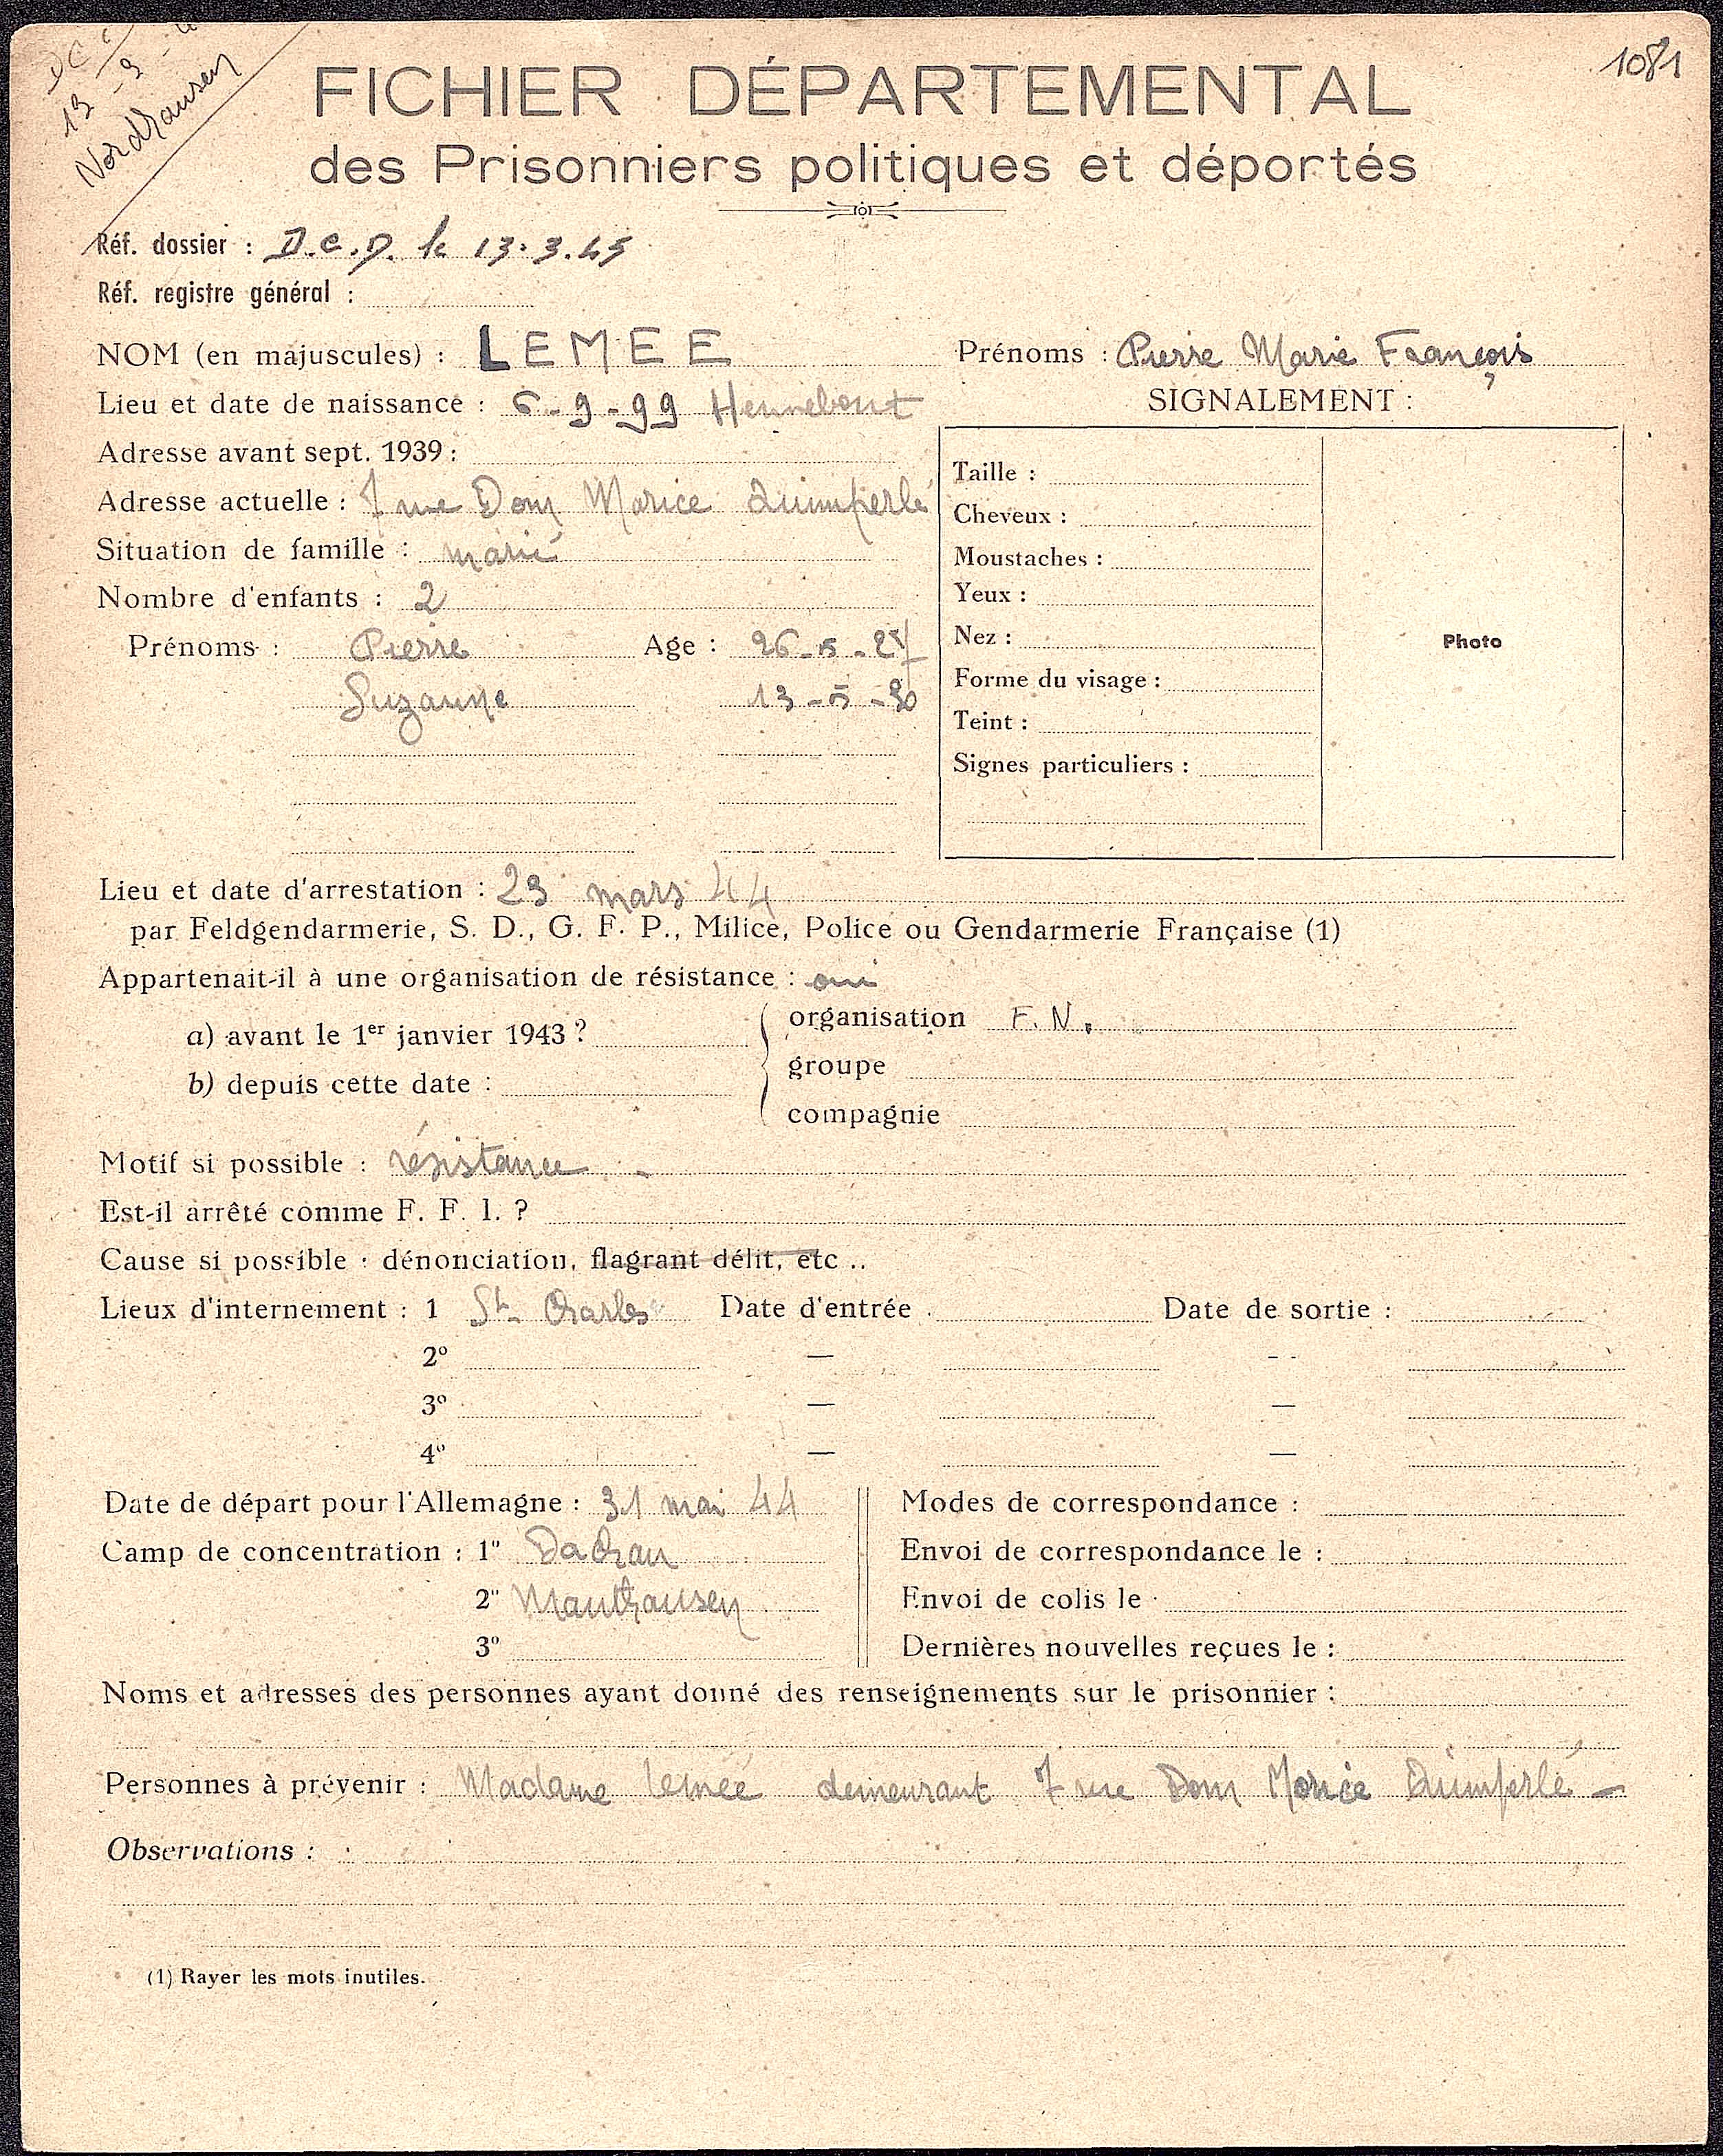 1081
13 - 3
Nordhausen
FICHIER DÉPARTEMENTAL
des Prisonniers politiques et déportés
Réf. dossier : D.C.D. le 13.3.45
Réf. registre général :
NOM (en majuscules) : LEMEE Prénoms : Pierre Marie François
Lieu et date de naissance : 6-9-99 Hennebont SIGNALEMENT :
Adresse avant sept. 1939 :
Adresse actuelle : 7 rue Dom Morice Quimperlé
Situation de famille : marié
Nombre d'enfants : 2
Prénoms : Pierre Age : 26-5-27
Suzanne 13-5-30
Taille :
Cheveux :
Moustaches :
Yeux :
Nez :
Forme du visage :
Teint :
Signes particuliers :
Photo
Lieu et date d'arrestation : 23 mars 44
par Feldgendarmerie, S. D., G. F. P., Milice, Police ou Gendarmerie Française (1)
Appartenait-il à une organisation de résistance : oui
a) avant le 1er janvier 1943 ?
b) depuis cette date :
organisation F. N.
groupe
compagnie
Motif si possible : résistance -
Est-il arrêté comme F. F. I. ?
Cause si possible : dénonciation, flagrant délit, etc ..
Lieux d'internement : 1 St. Charles Date d'entrée . Date de sortie :
2° — - -
3° — —
4° — —
Date de départ pour l'Allemagne : 31 mai 44
Camp de concentration : 1° Dachau
2° Mauthausen
3°
Modes de correspondance :
Envoi de correspondance le :
Envoi de colis le
Dernières nouvelles reçues le :
Noms et adresses des personnes ayant donné des renseignements sur le prisonnier :
Personnes à prévenir : Madame lemée demeurant 7 rue Dom Morice Quimperlé -
Observations :
(1) Rayer les mots inutiles.